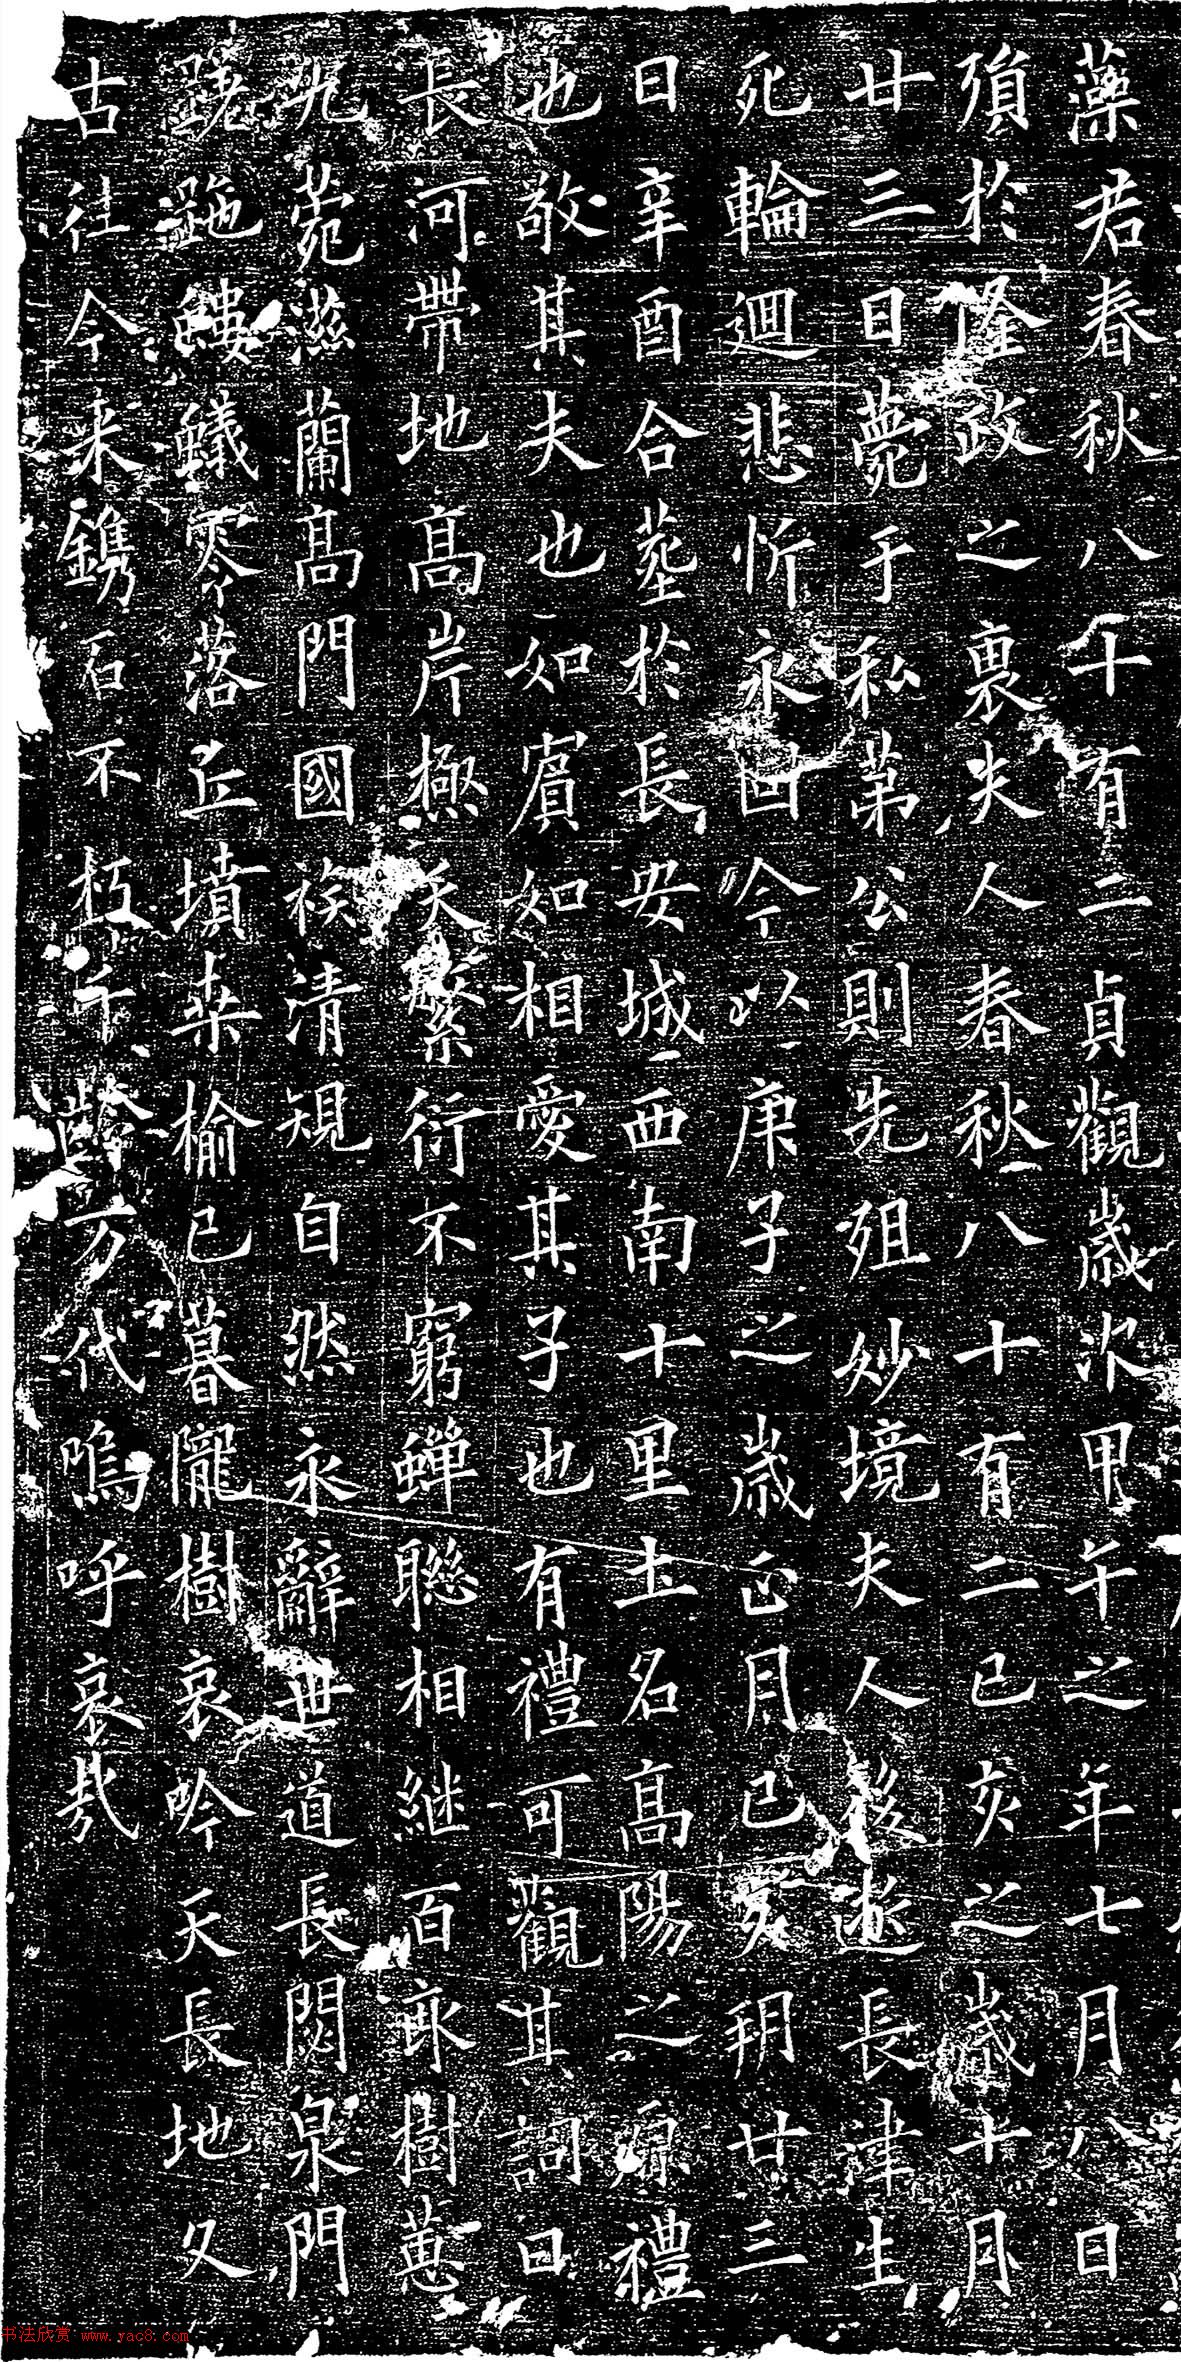 藻君春秋八十有二貞觀歲次甲午之年七月八日
殞於隆政之裏夫人春秋八十有二已亥之歲十月
廿三日薨于私第公則先殂妙境夫人後逝長津生
死輪迴悲忻永固今以庚子之歲正月已亥朔廿三
日辛酉合塟於長安城西南十里土名高陽之原禮
也敬其夫也如賓如相愛其子也有禮可觀其詞曰
長河帶地高岸極天繁衍不窮蟬聯相継百畝樹蕙
九菀滋蘭高門國族清規自然永辭世道長閟泉門
跎螻蟻零落丘墳桒榆已暮隴樹哀吟天長地久
古往今来鐫石不朽千齡万代嗚呼哀哉
书法欣赏 www.yac8.com